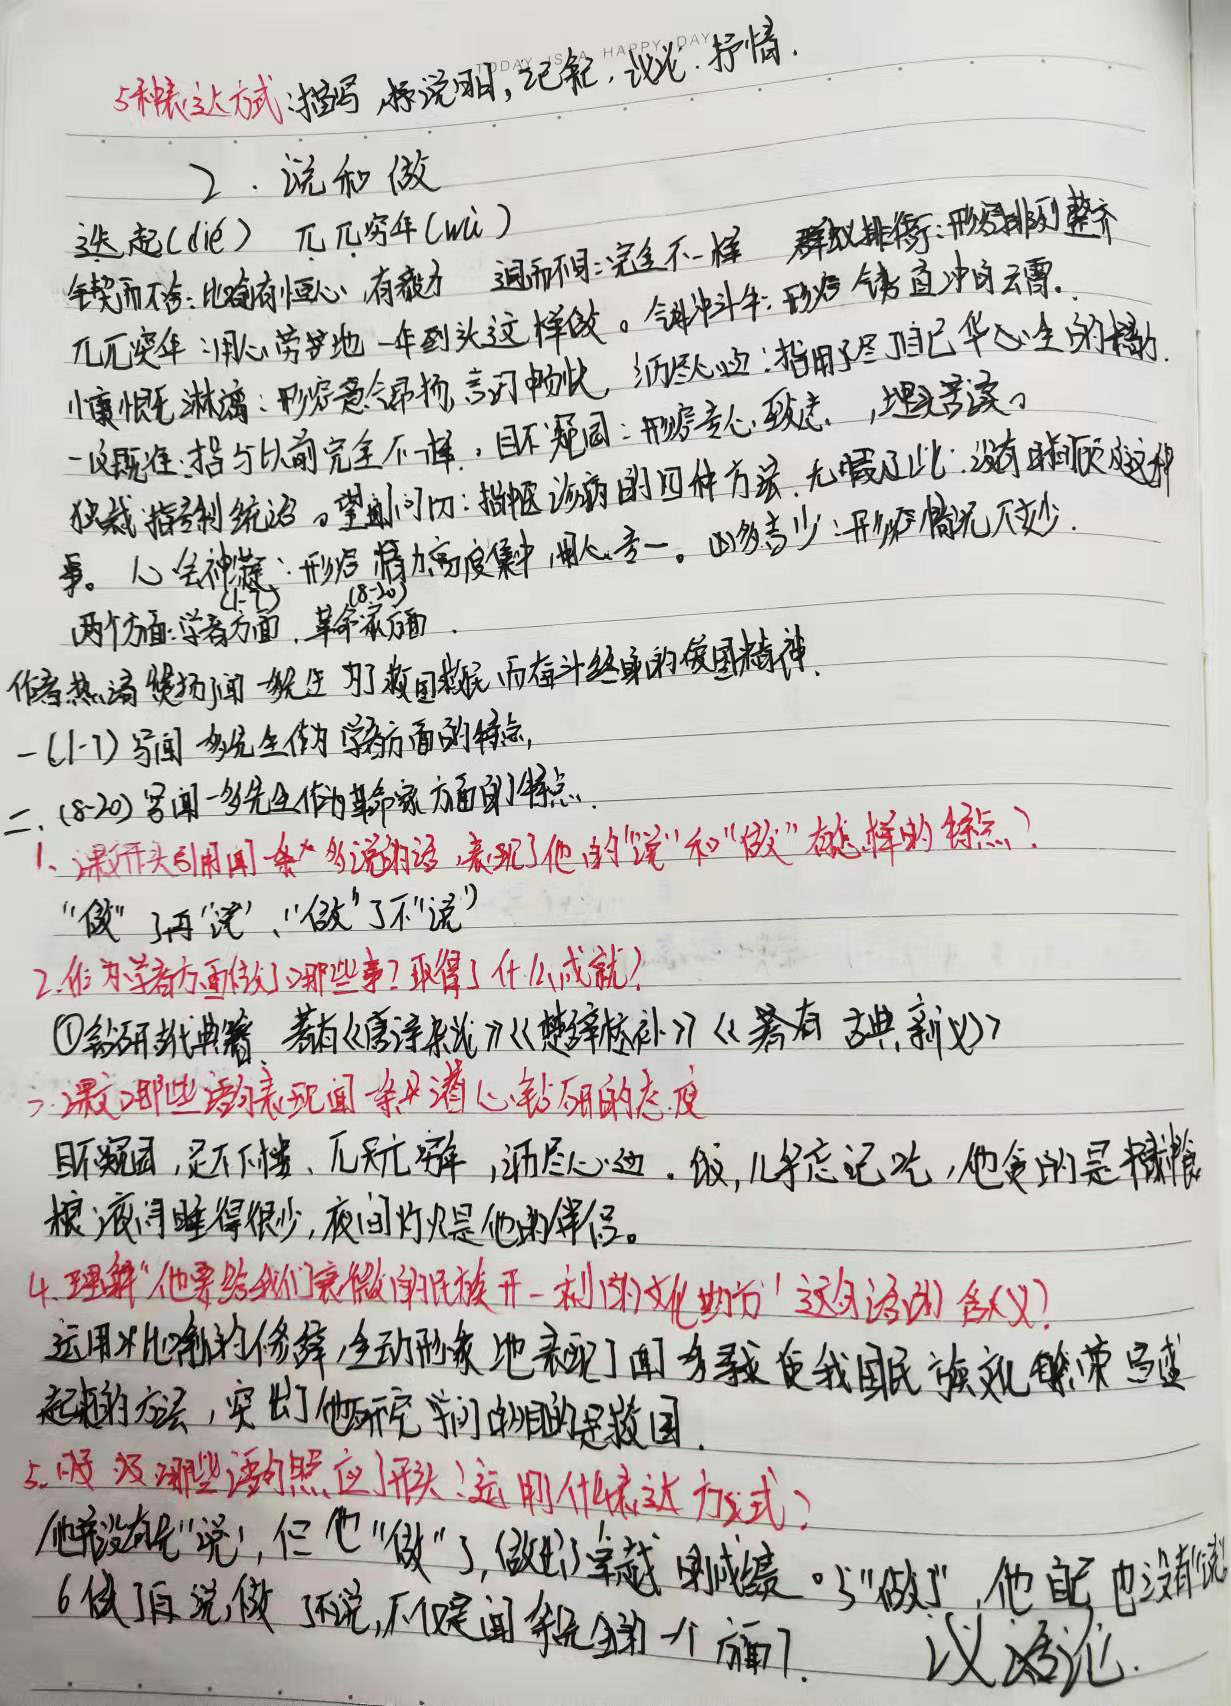 TODAY IS A HAPPY DAY
5种表达方式:描写,说明,记叙,议论.抒情.
2.说和做
迭起(dié) 兀兀穷年(wù)
锲而不舍:比喻有恒心,有毅力 迥而不同:完全不一样 群蚁排衙:形容排列整齐
兀兀穷年:用心劳苦地一年到头这样做。气冲斗牛:形容气势直冲白云霄.
慷慨淋漓:形容意气昂扬,言词畅快,沥尽心血:指用尽了自己心血的精力.
一反既往:指与以前完全不一样.,目不窥园:形容专心致志,埋头苦读。
独裁:指专制统治。望闻问切:指中医诊病的四种方法.无暇及此:没有时间顾及这种
事。心会神凝:形容精力高度集中,用心专一。凶多吉少:形容情况不妙.
(1-7) (8-20)
两个方面:学者方面.革命家方面.
作者热情赞扬了闻一多先生为了救国救民而奋斗终身的爱国精神.
一(1-7)写闻一多先生作为学者方面的特点,
二.(8-20)写闻一多先生作为革命家方面的特点.
1、课文开头引用闻一多说的话,表现了他的"说"和"做"有怎样的特点?
"做"了再"说"、"做"了不"说"
2.作为学者方面做了哪些事?取得了什么成就?
①钻研古代典籍 著有《唐诗杂论》《楚辞校补》《著有 古典新义》
课文哪些语句表现闻一多潜心钻研的态度
目不窥园,足不下楼、兀兀穷年,沥尽心血.饭,几乎忘记吃,他贪的是精神食
粮;夜间睡得很少,夜间灯火是他的伴侣。
4.理解"他要给我们衰微的民族开一剂的文化药方"这句话的含义?
运用比喻的修辞,生动形象地表现了闻一多寻找使我国民族文化繁荣昌盛
起来的方法,突出了他研究学问的目的是救国.
5.哪些语句照应了开头?运用什么表达方式?
他并没有先"说",但他"做"了,做出了卓越的成绩。"做了",他自己也没有"说"
6做了再说,做了不说,不仅是闻一多先生的一个方面?.
议论.